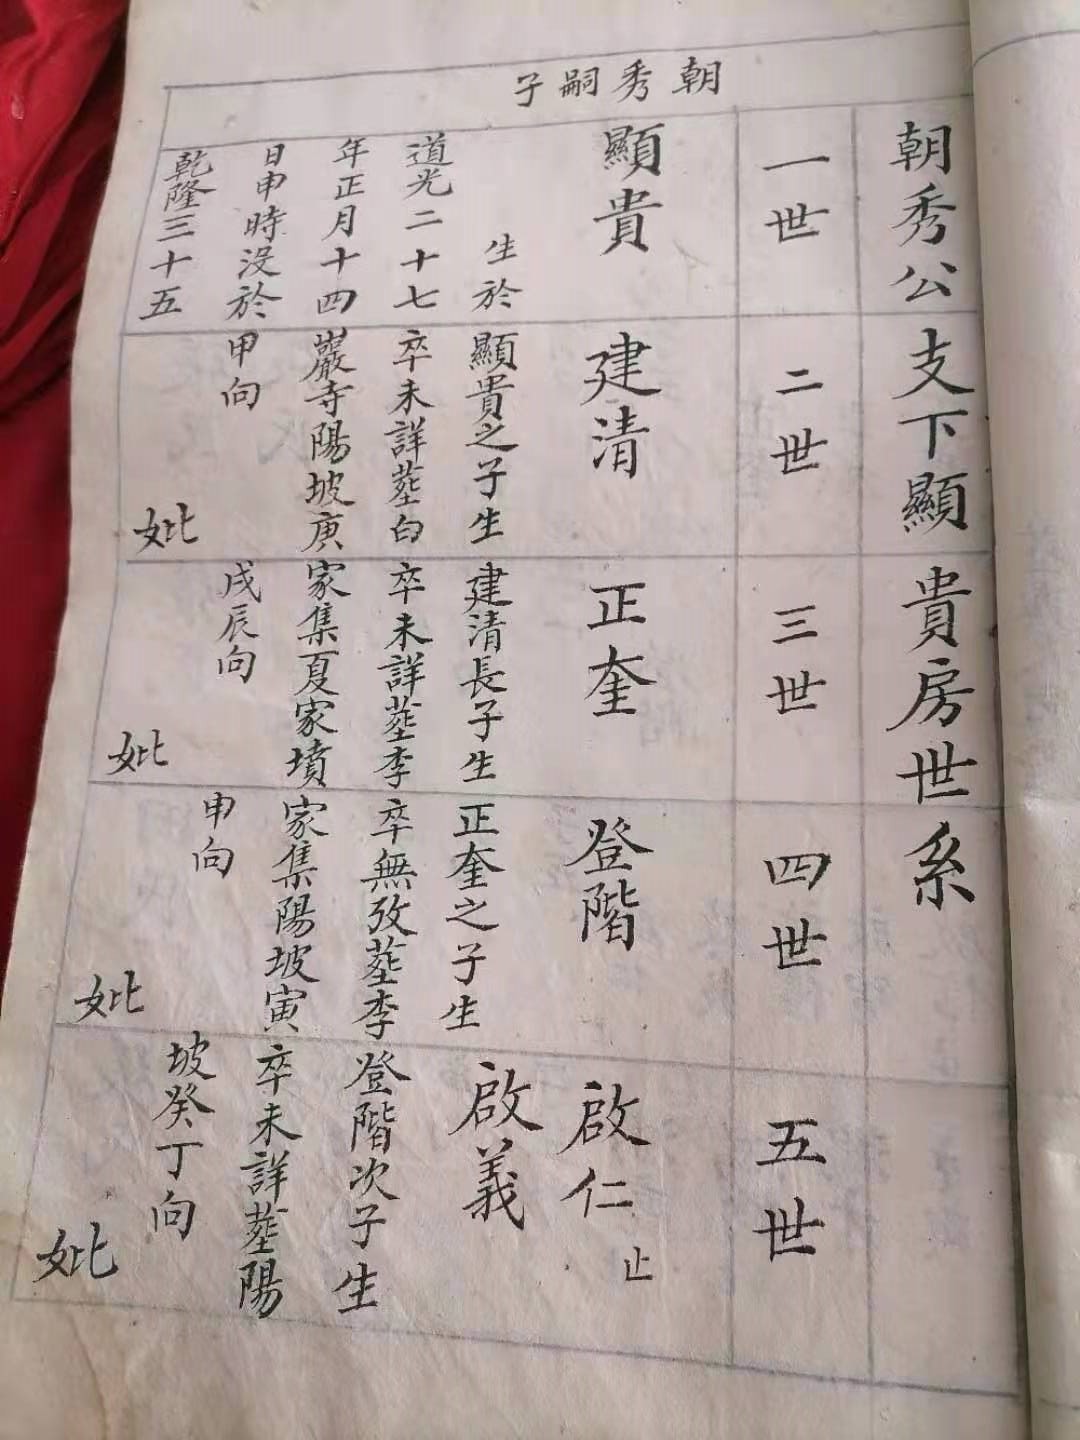 朝秀公支下顯貴房世系
朝秀嗣子
一世
顯貴
生於
道光二十七
年正月十四
日申時沒於
乾隆三十五
二世
建清
顯貴之子生
卒未詳塟白
巖寺陽坡庚
甲向
妣
三世
正奎
建清長子生
卒未詳塟李
家集夏家墳
戌辰向
妣
四世
登階
正奎之子生
卒無攷塟李
家集陽坡寅
申向
妣
五世
啟仁 止
啟義
登階次子生
卒未詳塟陽
坡癸丁向
妣